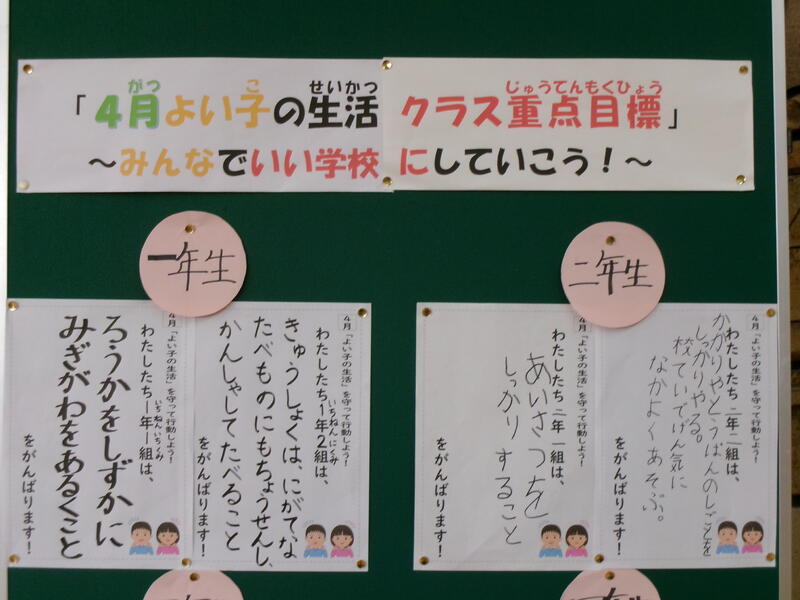 「4月よい子の生活 クラス重点目標」
がつ こ せいかつ じゅうてんもくひょう
～みんなでいい学校 にしていこう！～
一年生
二年生
4月「よい子の生活」を守って行動しよう！
わたしたち1年1組は、
いちねんいちくみ
ろうかをしずかに
みぎがわをあるくこと
をがんばります！
4月「よい子の生活」を守って行動しよう！
わたしたち1年2組は、
いちねんにくみ
きゅうしょくは、にがてな
たべものにもちょうせんし、
かんしゃしてたべること
をがんばります！
4月「よい子の生活」を守って行動しよう！
わたしたち二年一組は、
あいさつを
しっかりすること
をがんばります！
4月「よい子の生活」を守って行動しよう！
わたしたち二年二組は、
かかりやとうばんのしごとを
しっかりやる。
校ていでげん気に
なかよくあそぶ。
をがんばります！